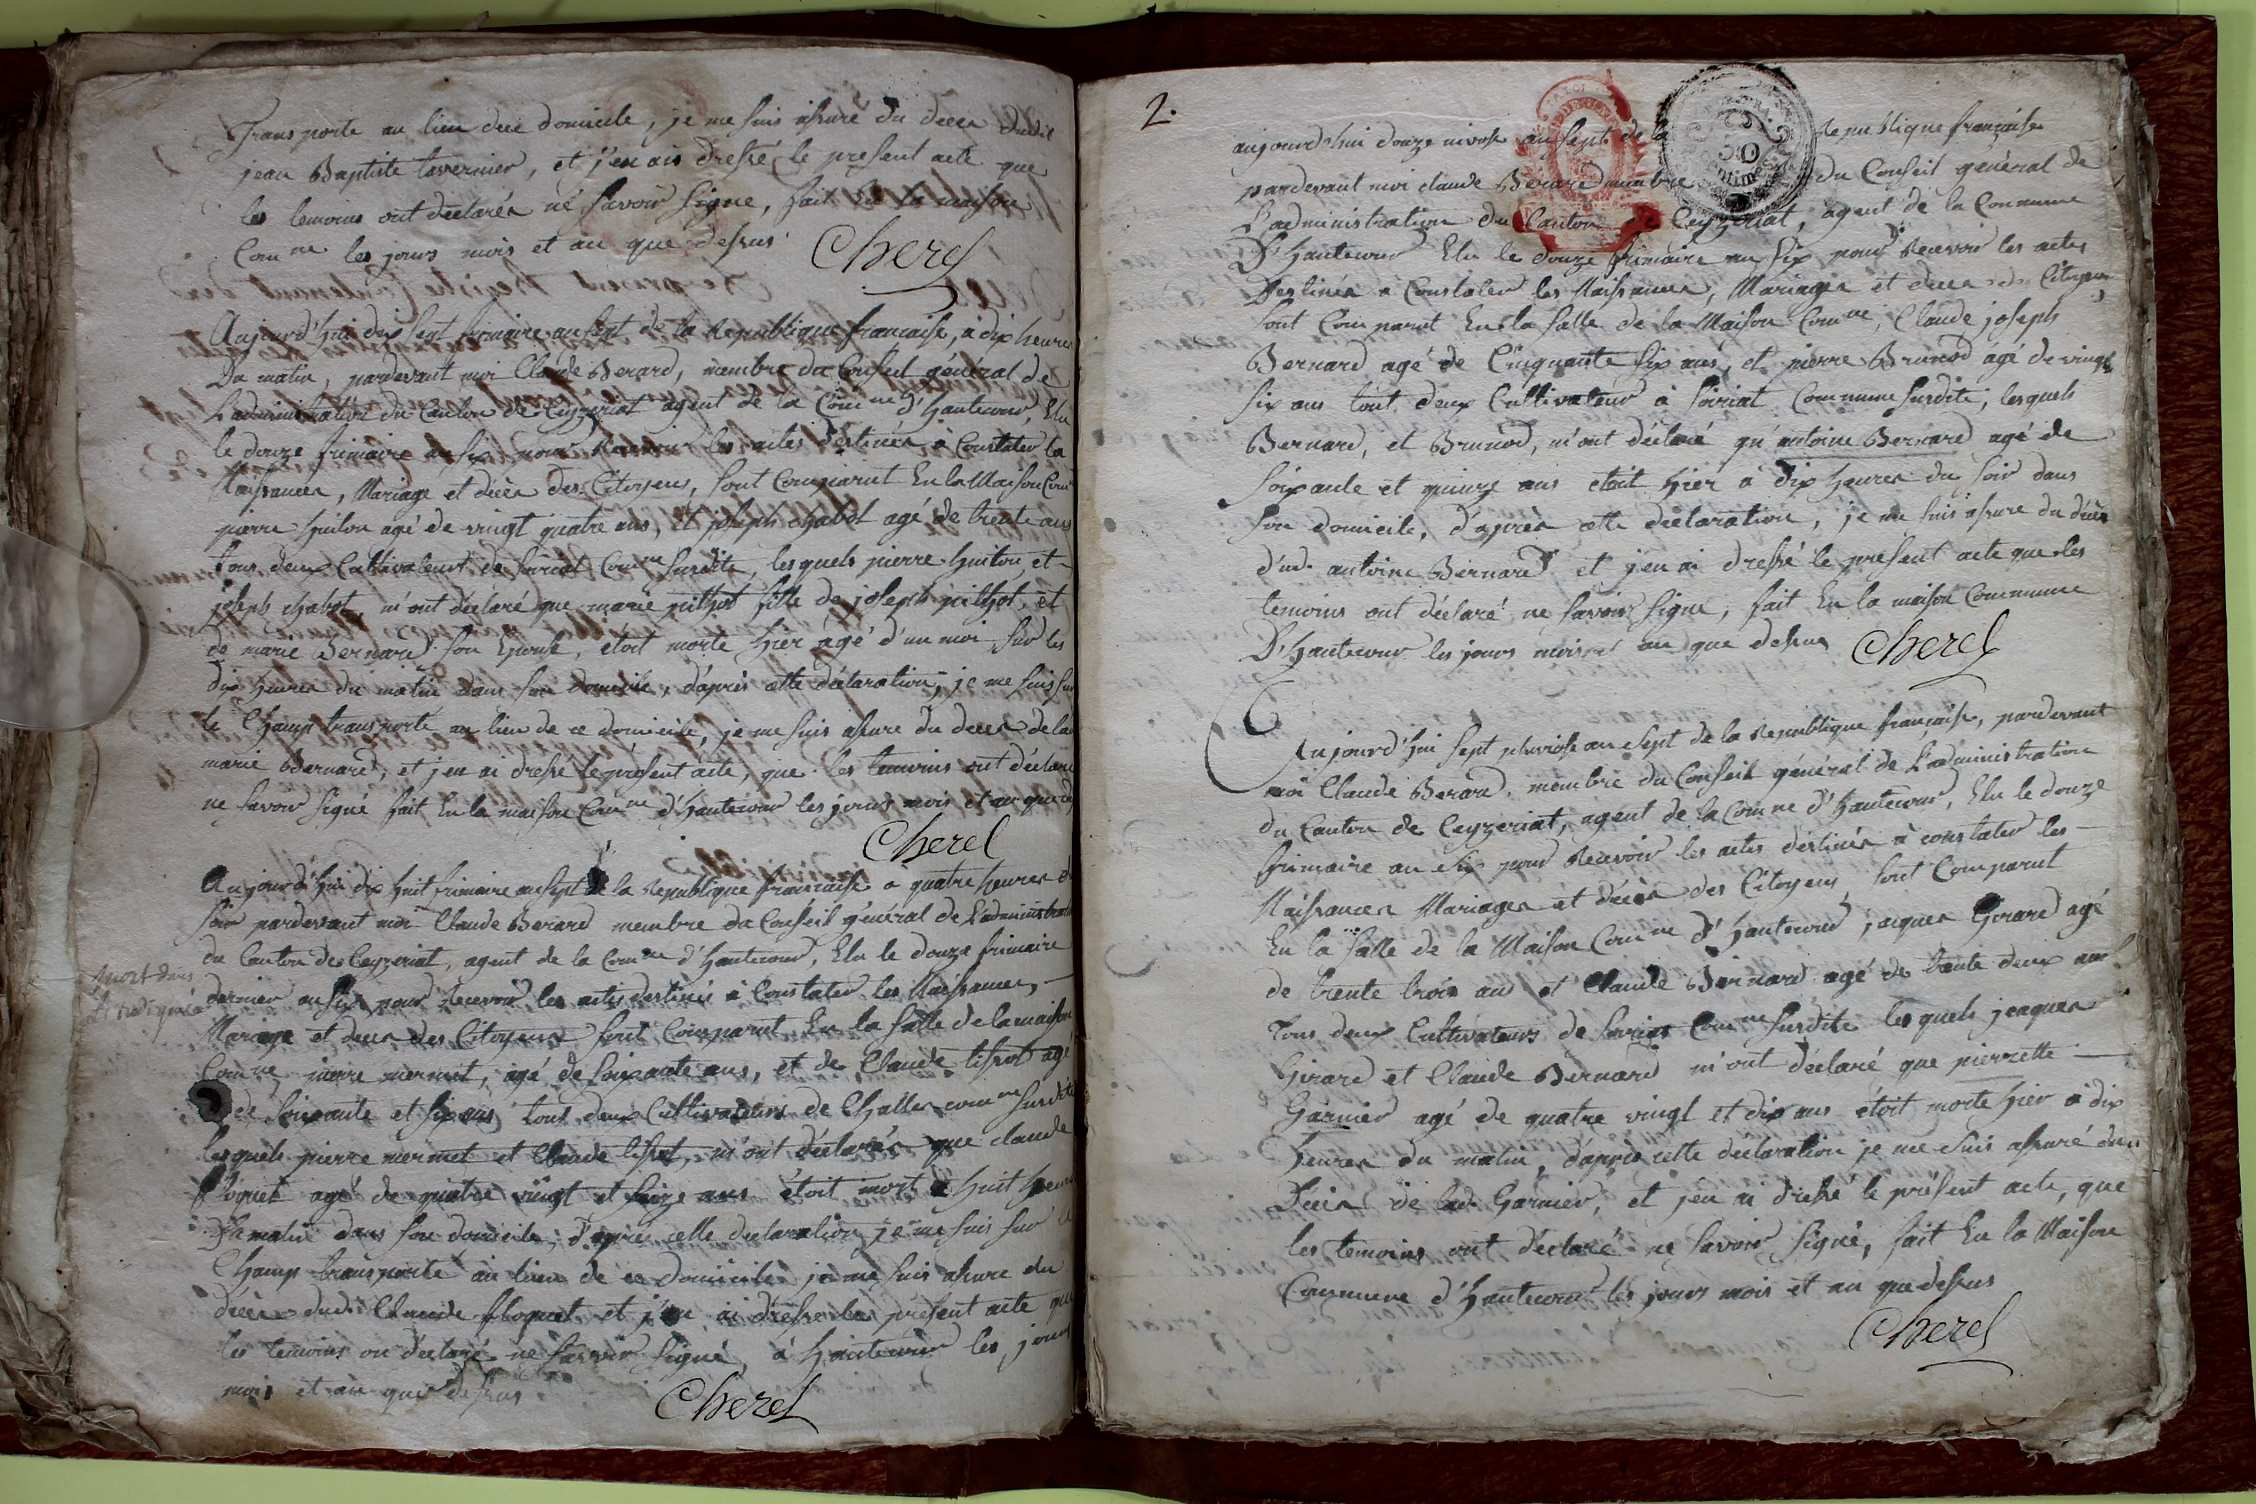 Transporte au lieu dud domicile, je me suis assuré du deces dudit
jean Baptiste tavernier, et j'en ais dressé le present acte que
les temoins ont declarés ne savoir signe, fait En la maison
Comne les jours mois et an que dessus.
Cherel
Aujourd'hui dix sept frimaire an sept de la Republique française, a dix heures
Du matin, pardevant moi Claude Berard, membre du Conseil général de
L'administration du Canton de Ceyzeriat agent de la Comne d'hautecour Elu
le douze frimaire an six pour Recevoir les actes destinés à Constater la
Naissances, Mariage et décès des Citoyens, sont Comparut En la Maison Com
pierre huiton agé de vingt quatre ans, et joseph chabot agé de trente ans
tous deux Cultivateurs de Comne susdite, lesquels pierre huiton, et
joseph chabot, m'ont déclaré que marie pithot fille de joseph pithot, et
de marie Bernard son Epouse, étoit morte hier agé d'un moi sur les
dix heures du matin dans son domicile, d'après cette déclaration, je me suis sur
le Champ transporté au lieu de ce domicile, je me suis assure du deces de lad
marie Bernard, et j'en ai dressé le present acte, que les temoins ont déclaré
ne savoir signé fait En la maison Comne d'hautecour les jours mois et an que de
Cherel
Aujourd'hui dix huit frimaire an sept de la Republique française a quatre heures d
soir pardevant moi Claude Berard membre du Conseil général de L'administrat
du Canton de Ceyzeriat, agent de la Comne d'hautecour, Elu le douze frimaire
mort dans
dernier an six pour Recevoir les actes destinés à Constater les Naissances,
Mariage et deces des Citoyens sont Comparut En la salle de la maison
Comne pierre mermet, agé de soixante ans, et de Claude tissot agé
de soixante et six ans tous deux Cultivateurs de Challes comne susdite
lesquels pierre mermet et Claude tissot, m'ont déclarés que claude
floquet agé de quatre vingt et seize ans étoit mort a huit heure
Du matin dans son domicile, d'après cette declaration je me suis sur le
Champ transporté au lieu de ce domicile je me suis assure du
décès dud. Claude floquet et j'en ai dressé le présent acte que
les temoins on déclaré ne savoir signé, à hautecour les jours
mois et an que dessus
Cherel
2.
aujourd'hui douze nivose an sept de la Republique française
pardevant moi claude Berard membre du Conseil général de
L'administration du Canton de Ceyzeriat, agent de la Commune
D'hautecour Elu le douze frimaire an six pour Recevoir les actes
Destinés a Constater les Naissances, Mariages et deces des Citoyens
sont Comparut En la salle de la Maison Comne, Claude joseph
Bernard agé de Cinquante six ans, et pierre Brunod agé de vingt
six ans tout deux Cultivateur à Commune susdite, lesquels
Bernard, et Brunod, m'ont déclaré qu'antoine Bernard agé de
soixante et quinze ans etoit hier a dix heures du soir dans
son domicile, d'après cette déclaration, je me suis assure du décès
dud. antoine Bernard et j'en ai dressé le présent acte que les
temoins ont déclaré ne savoir signe, fait En la maison Commune
D'hautecour les jours mois et an que dessus
Cherel
Aujourd'hui sept pluviose an sept de la Republique française, pardevant
moi Claude Berard, membre du Conseil général de L'administration
du Canton de Ceyzeriat, agent de la Comne d'hautecour, Elu le douze
frimaire an six pour Recevoir les actes destinés à constater les
Naissances Mariages et décès des Citoyens, sont Comparut
En la salle de la Maison Comne d'hautecour jacques Girard agé
de trente trois ans et Claude Bernard agé de trente deux ans
tous deux Cultivateurs de Comne susdite lesquels jacques
Girard et Claude Bernard m'ont déclaré que pierrette
Garnier agé de quatre vingt et dix ans étoit morte hier a dix
heures du matin, d'après cette déclaration je me suis assuré du
Décès de lad. Garnier, et j'en ai dressé le présent acte, que
les temoins ont déclaré ne savoir signé, fait En la Maison
Commune d'hautecour les jours mois et an que dessus
Cherel